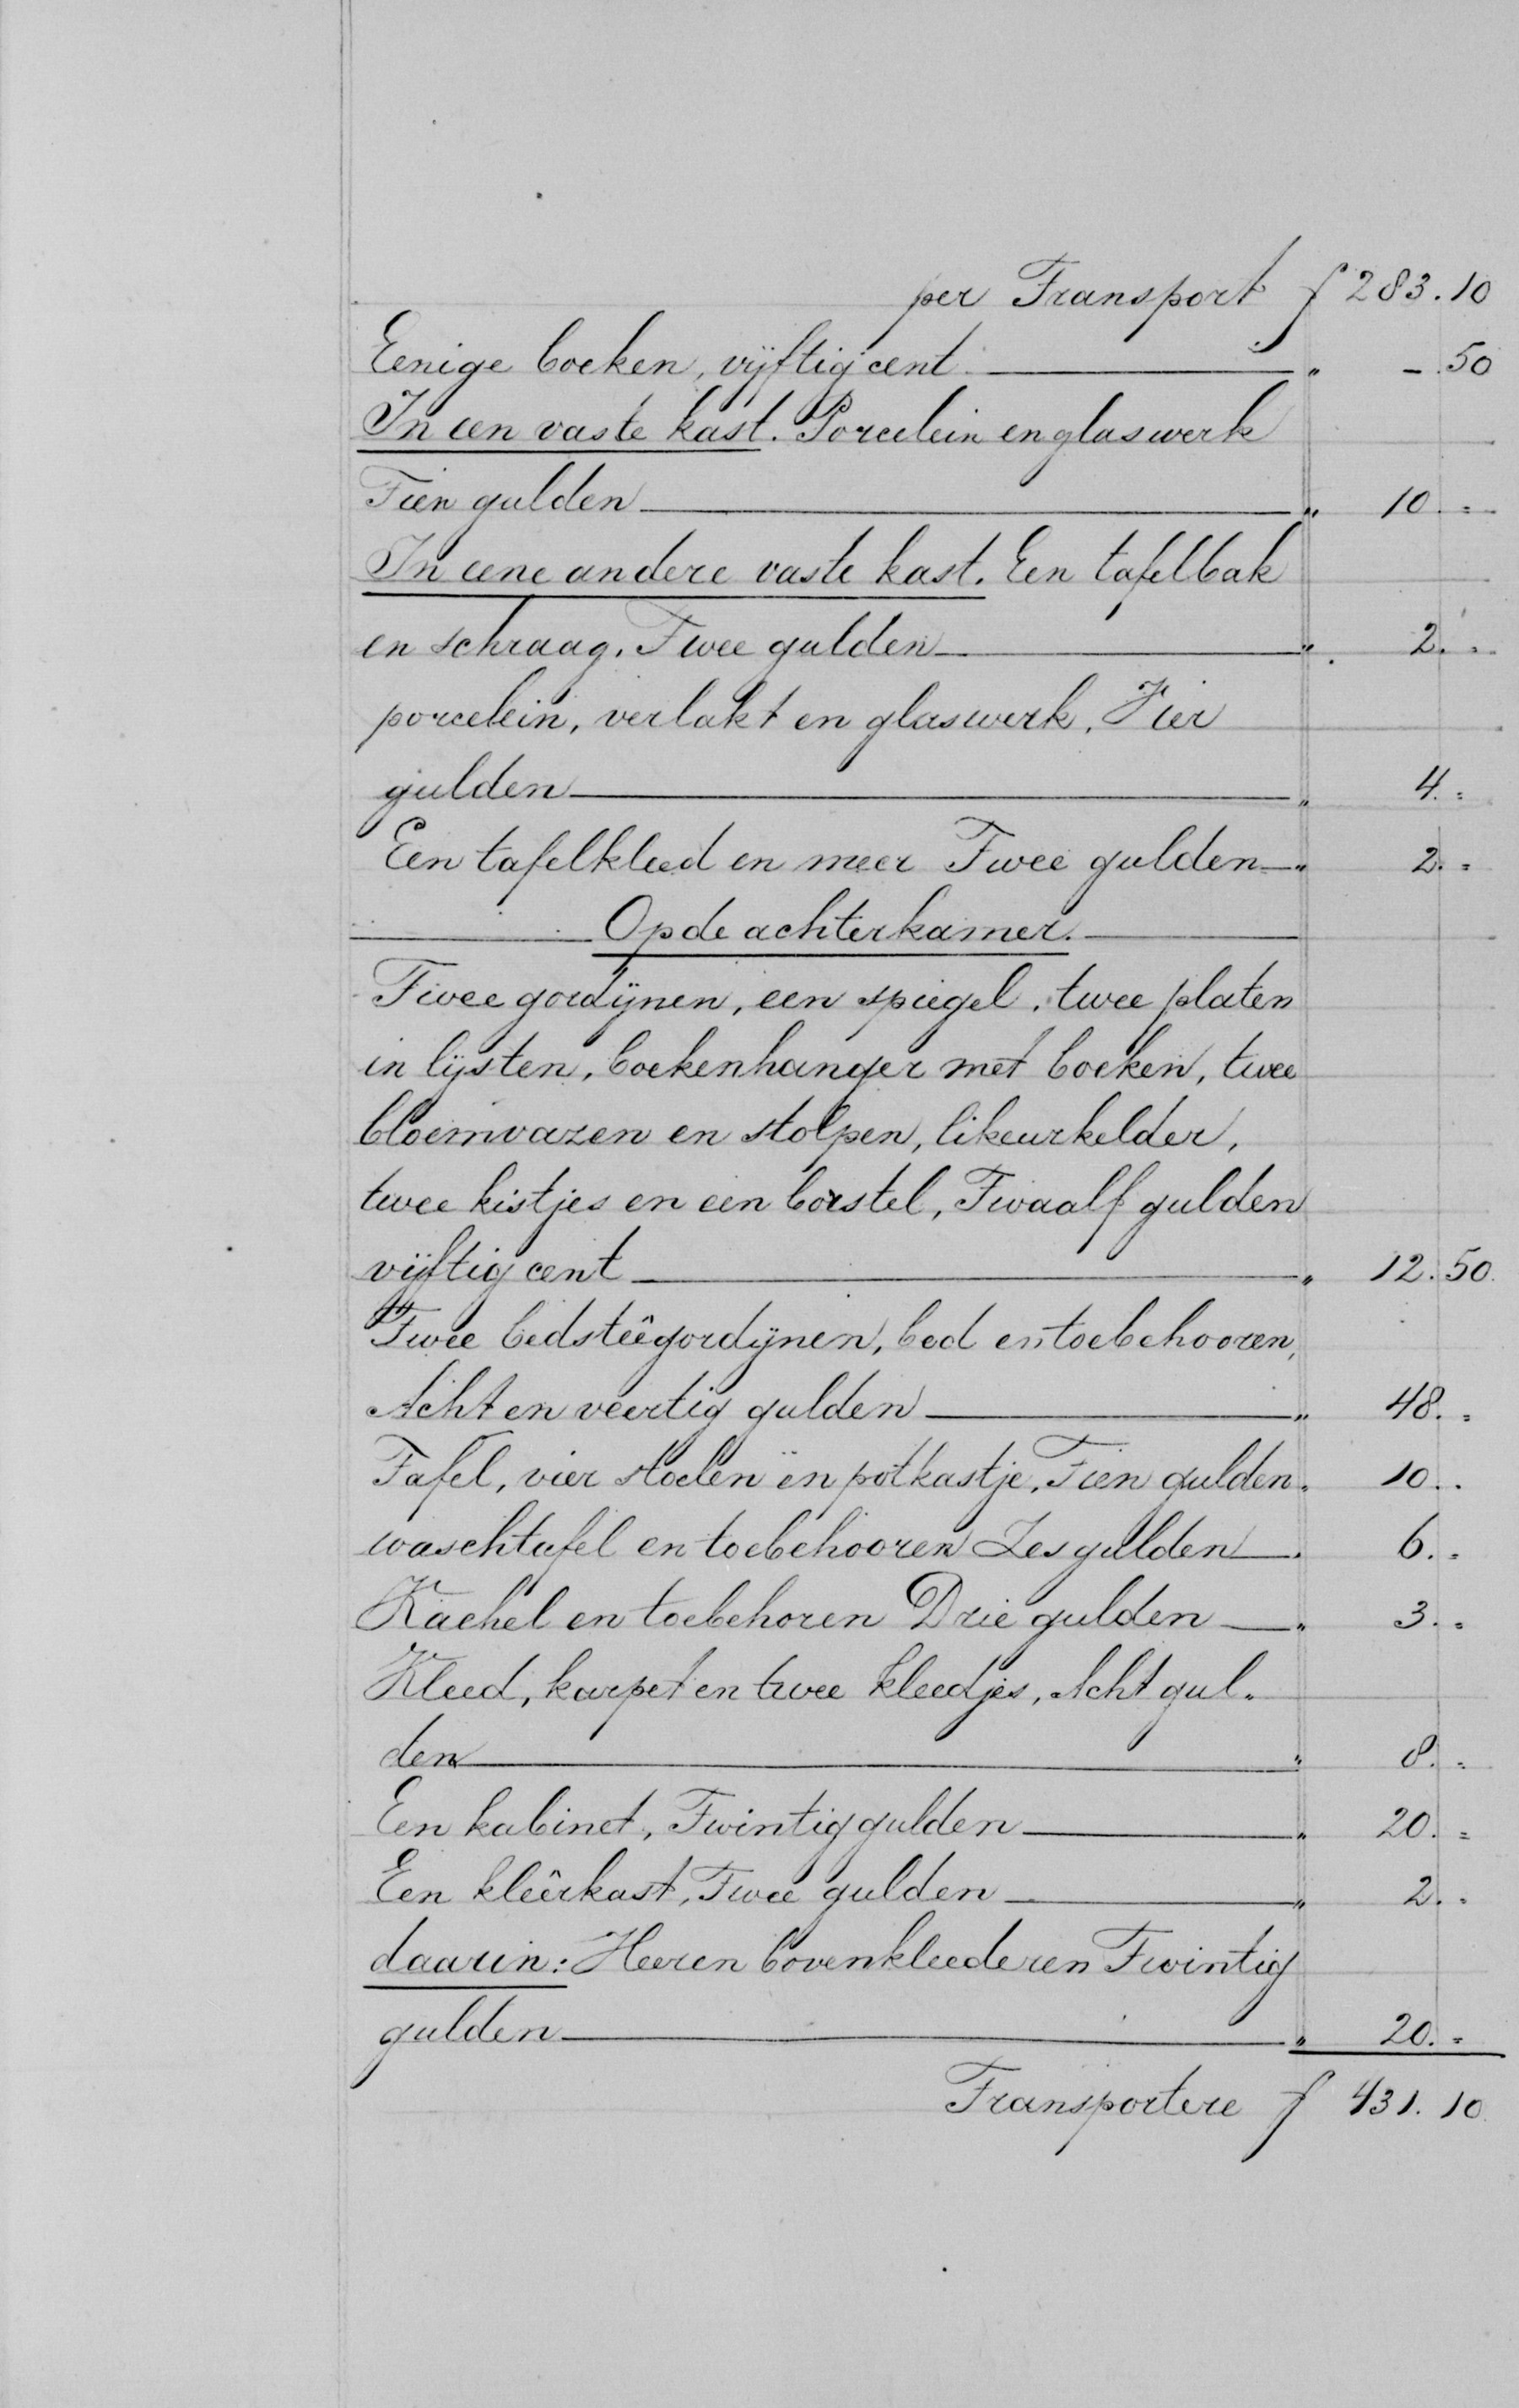 per Transport f 283.10
Eenige boeken, vijftig cent " -.50
In een vaste kast. Porcelein en glaswerk
Tien gulden " 10 =
In eene andere vaste kast. Een tafelbak
en schraag. Twee gulden " 2. =
porcelein, verlakt en glaswerk. Vier
gulden " 4. =
Een tafelkleed en meer Twee gulden " 2. =
Op de achterkamer.
Twee gordijnen, een spiegel, twee platen
in lijsten, boekenhanger met boeken, twee
bloemvazen en stolpen, likeurkelder,
twee kistjes en een borstel, Twaalf gulden
vijftig cent " 12.50.
Twee bedsteêgordijnen, bed en toebehooren,
Acht en veertig gulden " 48. =
Tafel, vier stoelen en potkastje, Tien gulden " 10. .
waschtafel en toebehooren Zes gulden " 6. =
Kachel en toebehoren Drie gulden " 3. =
Kleed, karpet en twee kleedjes, Acht gul=
den " 8. =
Een kabinet, Twintig gulden " 20. =
Een kleêrkast, Twee gulden " 2. =
daarin: Heeren bovenkleederen Twintig
gulden " 20. =
Transportere f 431.10.